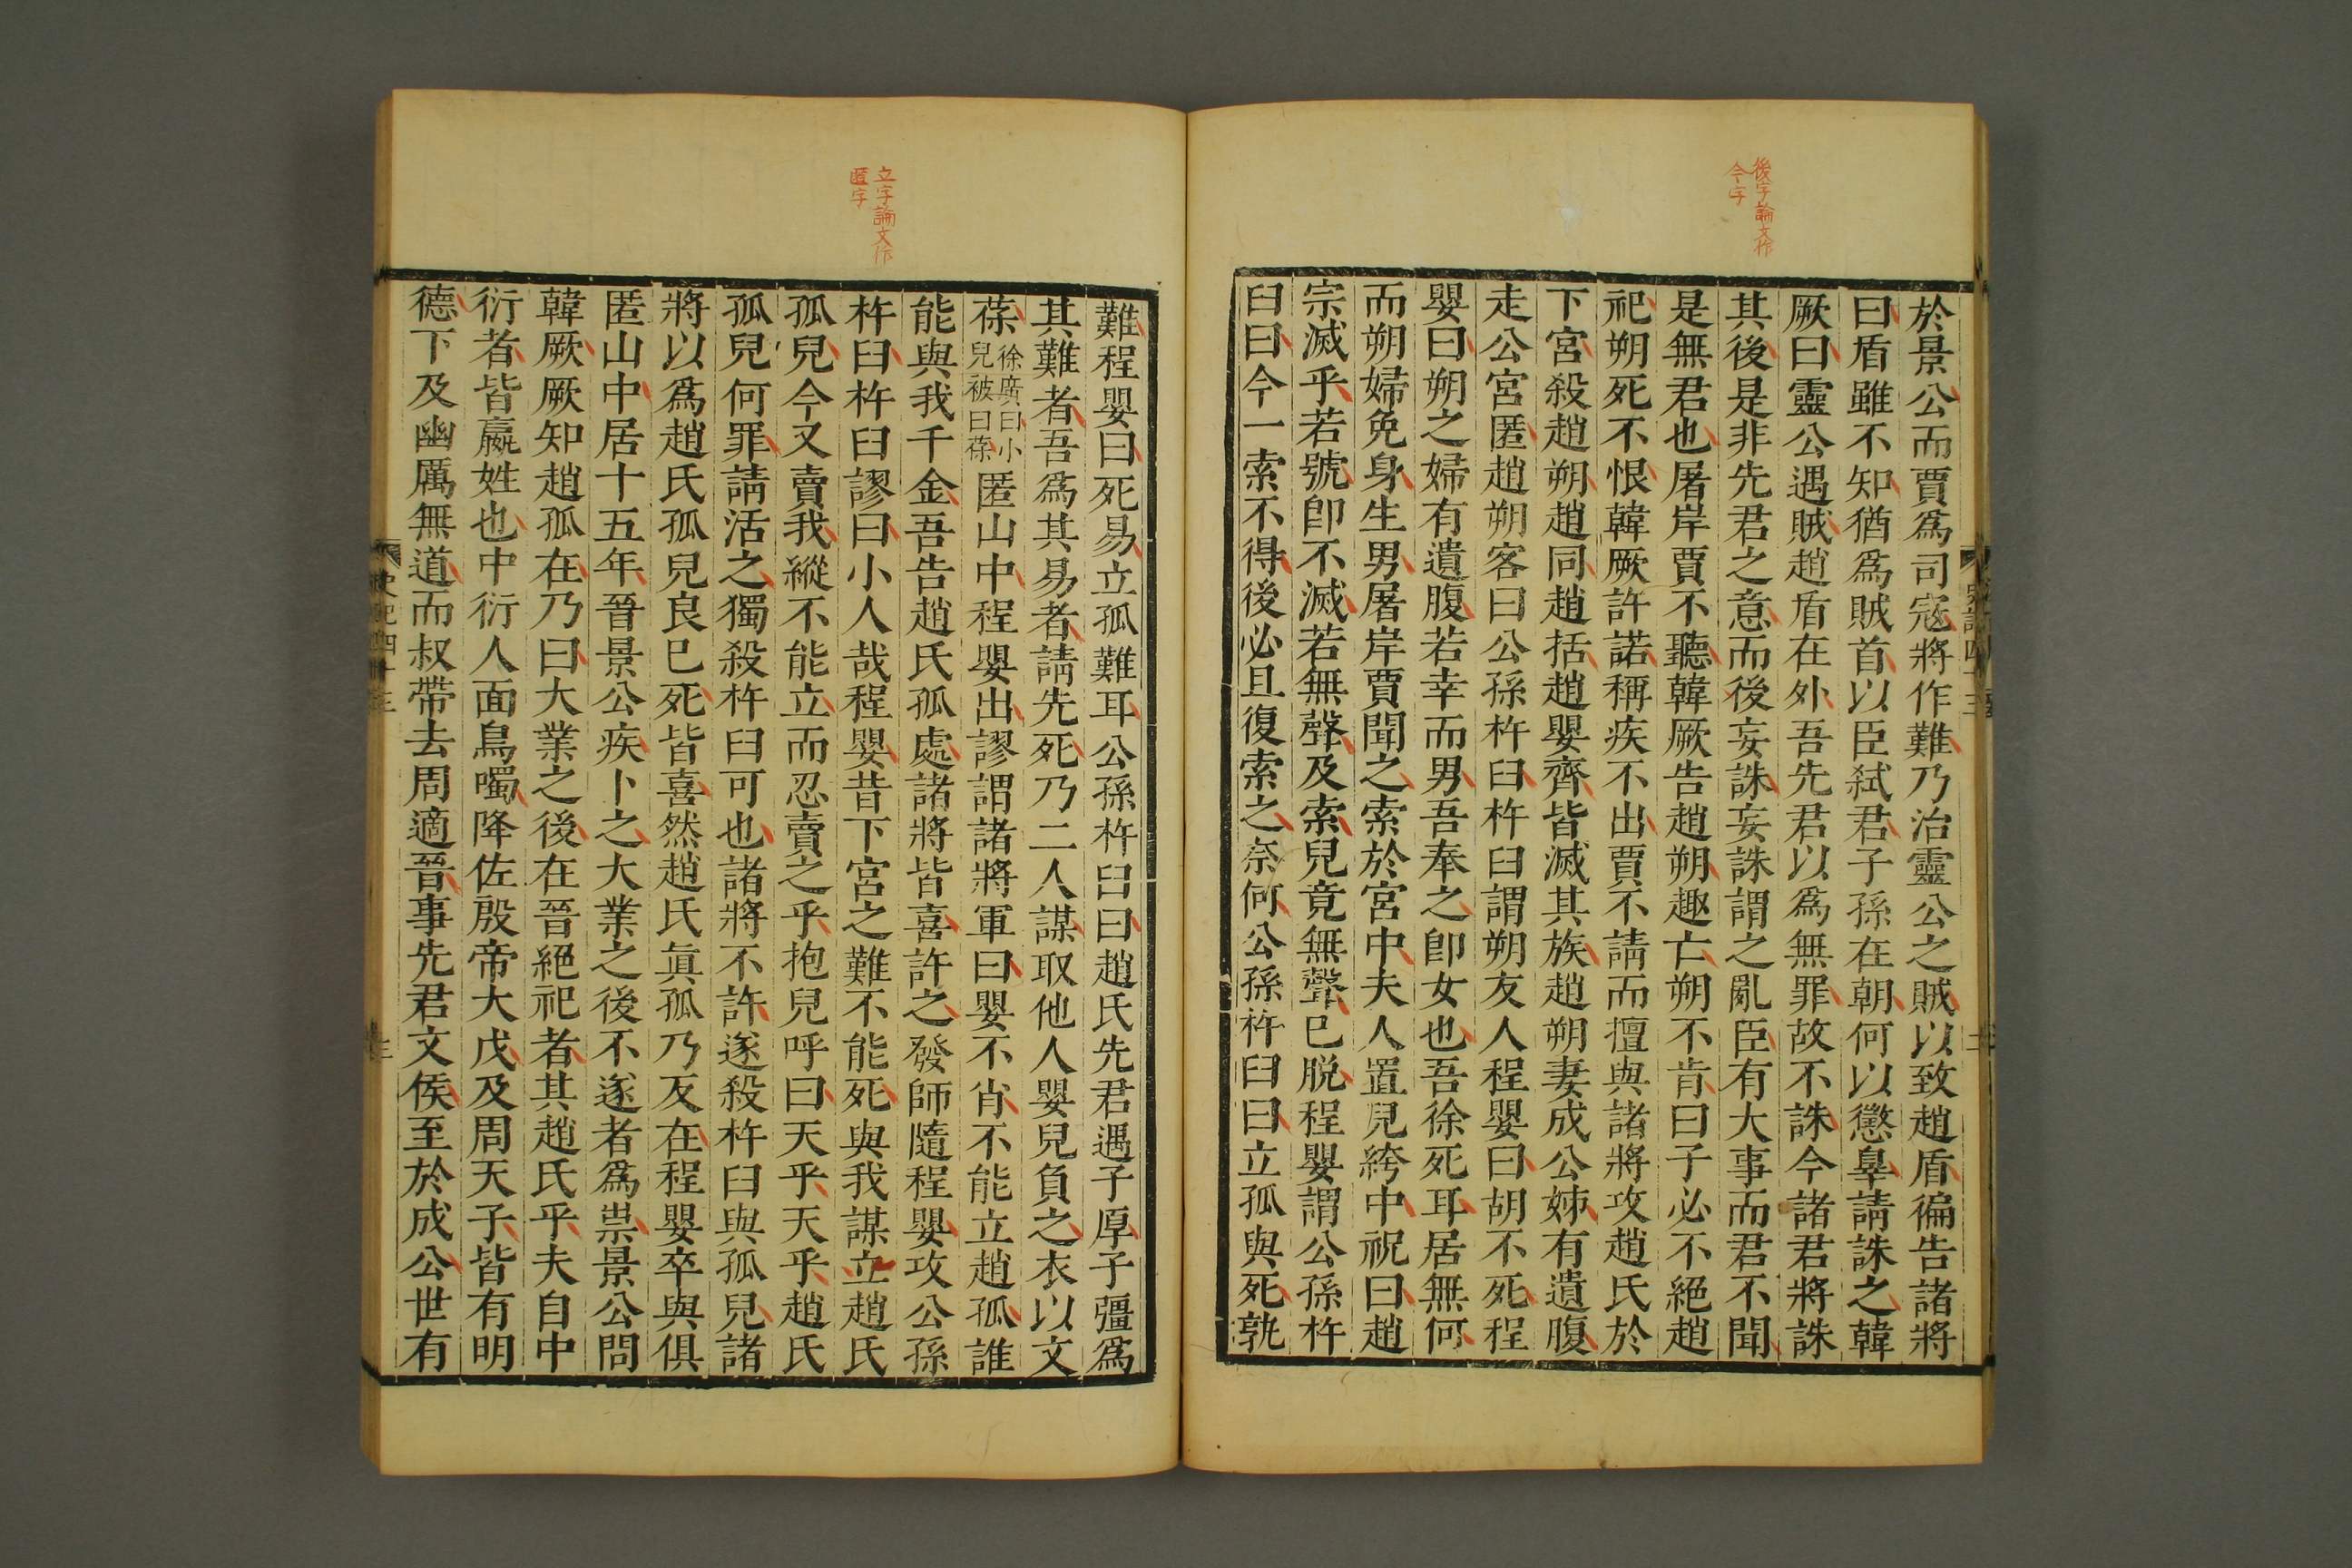 後字論文作
今字
於景公而賈爲司寇將作難乃治靈公之賊以致趙盾徧告諸將
曰盾雖不知猶爲賊首以臣弑君子孫在朝何以懲辠請誅之韓
厥曰靈公遇賊趙盾在外吾先君以爲無罪故不誅今諸君將誅
其後是非先君之意而後妄誅妄誅謂之亂臣有大事而君不聞
是無君也屠岸賈不聽韓厥告趙朔趣亡朔不肯曰子必不絕趙
祀朔死不恨韓厥許諾稱疾不出賈不請而擅與諸將攻趙氏於
下宮殺趙朔趙同趙括趙嬰齊皆滅其族趙朔妻成公姊有遺腹
走公宮匿趙朔客曰公孫杵臼杵臼謂朔友人程嬰曰胡不死程
嬰曰朔之婦有遺腹若幸而男吾奉之卽女也吾徐死耳居無何
而朔婦免身生男屠岸賈聞之索於宮中夫人置兒絝中祝曰趙
宗滅乎若號卽不滅若無聲及索兒竟無聲已脫程嬰謂公孫杵
臼曰今一索不得後必且復索之奈何公孫杵臼曰立孤與死孰
立字論文作
匿字
難程嬰曰死易立孤難耳公孫杵臼曰趙氏先君遇子厚子彊爲
其難者吾爲其易者請先死乃二人謀取他人嬰兒負之衣以文
葆徐廣曰小兒被曰葆匿山中程嬰出謬謂諸將軍曰嬰不肖不能立趙孤誰
能與我千金吾告趙氏孤處諸將皆喜許之發師隨程嬰攻公孫
杵臼杵臼謬曰小人哉程嬰昔下宮之難不能死與我謀立趙氏
孤兒今又賣我縱不能立而忍賣之乎抱兒呼曰天乎天乎趙氏
孤兒何罪請活之獨殺杵臼可也諸將不許遂殺杵臼與孤兒諸
將以爲趙氏孤兒良已死皆喜然趙氏眞孤乃反在程嬰卒與俱
匿山中居十五年晉景公疾卜之大業之後不遂者爲祟景公問
韓厥厥知趙孤在乃曰大業之後在晉絕祀者其趙氏乎夫自中
衍者皆嬴姓也中衍人面鳥噣降佐殷帝大戊及周天子皆有明
德下及幽厲無道而叔帶去周適晉事先君文侯至於成公世有